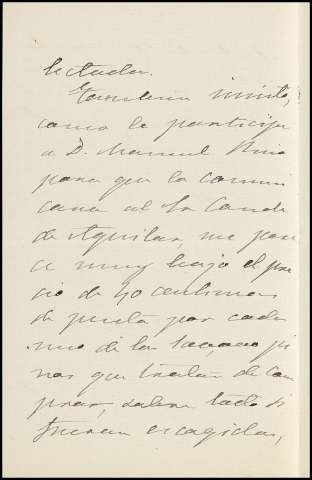 lectadas.
Tambien insisto,
como le participe
a D. Manuel Ruiz
para que lo comuni
cara al Sr Conde
de Aguilar, me pare
ce muy bajo el pre
cio de 40 centimos
de peseta por cada
uno de los 100,000 pi
nos que tratan de com
prar, sobre todo si
fueran escogidos,